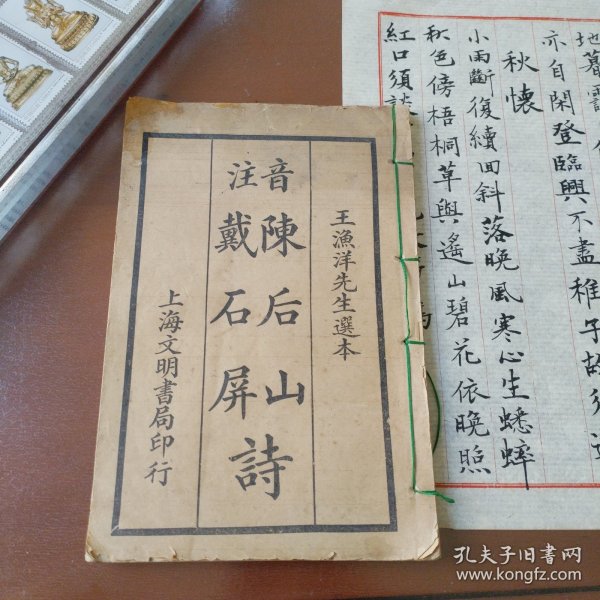 王漁洋先生選本
音注
陳后山
戴石屏
詩
上海文明書局印行
亦自閑登臨興不盡稚子故須
秋懷
小雨斷復續回斜落晚風寒心生蟋蟀
秋色傍梧桐草與遙山碧花依晚照
紅口須
孔夫子旧书网
www.kongfz.com